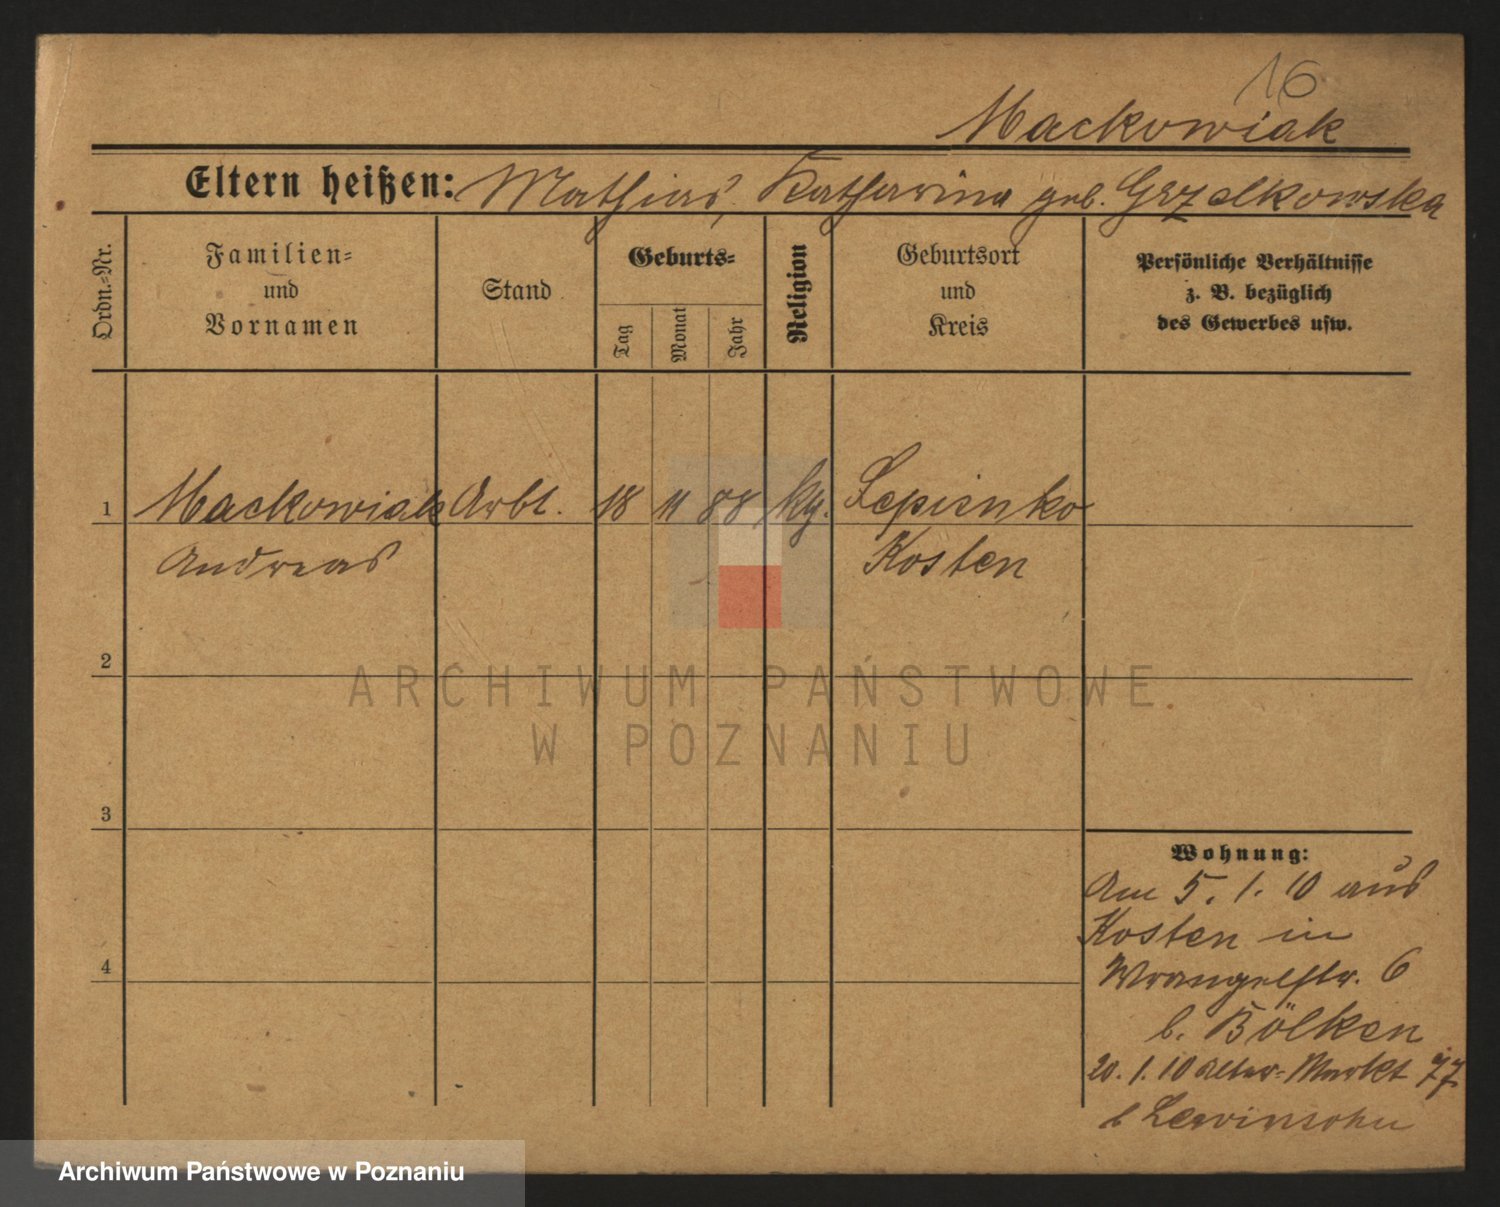 16
Mackowiak
Eltern heißen: Mathias, Katharina geb. Grzelkowska
Ordn.=Nr.
Familien=
und
Vornamen
Stand
Geburts=
Tag
Monat
Jahr
Religion
Geburtsort
und
Kreis
Persönliche Verhältnisse
z. B. bezüglich
des Gewerbes usw.
1 Mackowiak Arbt. 18 11 88 kg. Lepienko
Andreas Kosten
2
3
4
Wohnung:
Am 5. 1. 10 aus
Kosten in
Wrangelstr. 6
b. Bölken
20. 1. 10 Alter=Markt 77
b Lewinsohn
ARCHIWUM PAŃSTWOWE
W POZNANIU
Archiwum Państwowe w Poznaniu